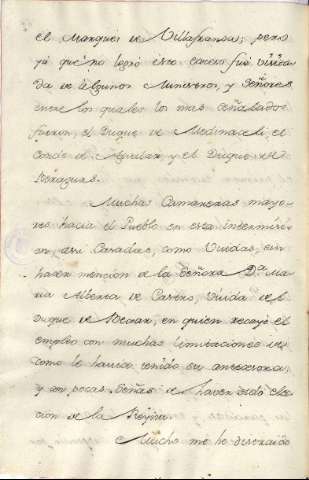 el Marques de Villafranca; pero
ya que no logró este empleo fue
da de algunos Ministros, y Señores
entre los quales los mas Señalados
fueron, el Duque de Medinaceli, el
Conde de Aguilar, y el Duque de
Veraguas.
Muchas Camareras mayo
res hacia el Pueblo en esta intermisi
on, asi Casadas, como Viudas, sin
hacer mencion de la Señora D.ª Ma
ria Alberta de Castro, Viuda del
Duque de Bejar, en quien recayó el
empleo con muchas limitaciones de
como le havia tenido su antecesora,
y con pocas Señas de haver sido elec
cion de la Reyna.
Mucho me he